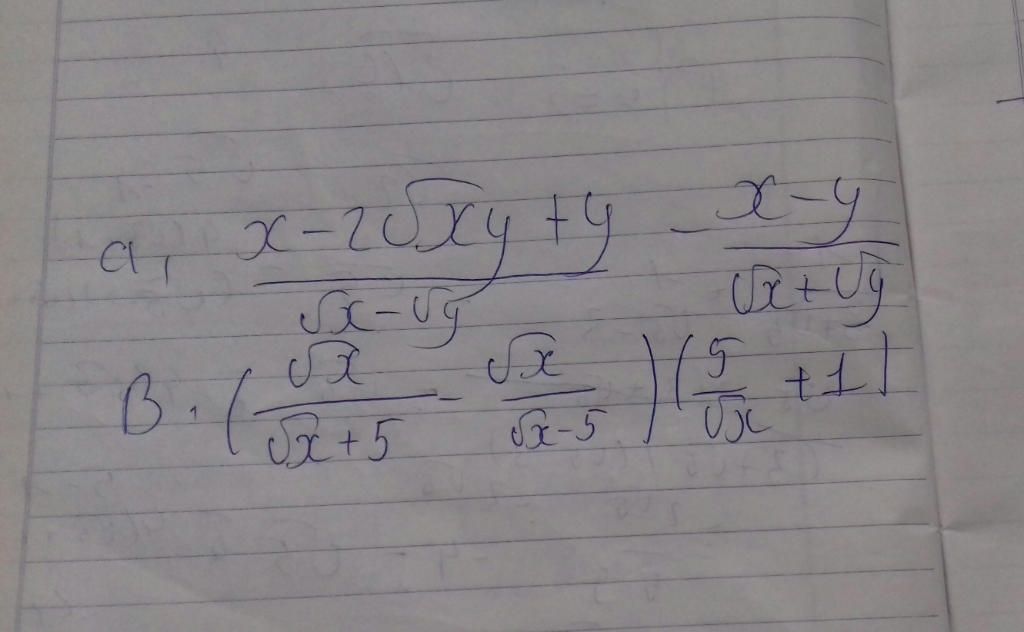 a, (x - 2√xy + y)/(√x - √y) - (x - y)/(√x + √y)
B. (√x/(√x + 5) - √x/(√x - 5)) (5/√x + 1)